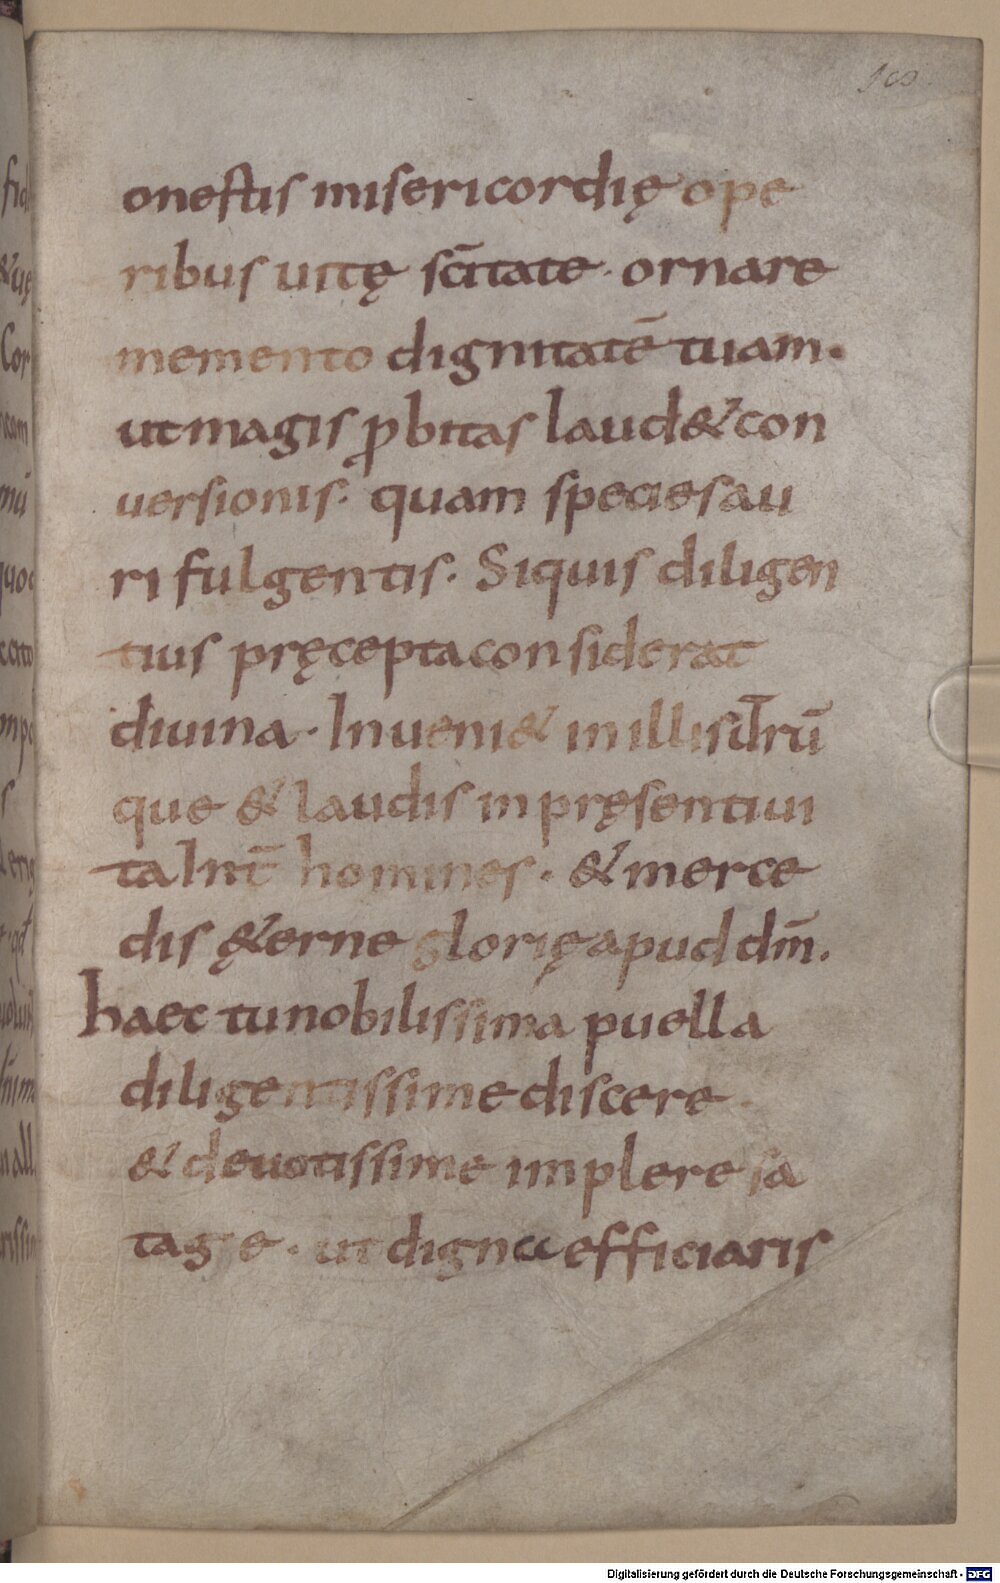 100
onestis misericordię ope
ribus uitę sc̄itate · ornare
memento dignitatē tuam.
ut magis ꝓbitas laud& con
uersionis. quam species au
ri fulgentis. Siquis diligen
tius pręcepta considerat
diuina. Inueni& in illis ut̄rū
que & laudis in pręsenti ui
ta Int̄ homines. & merce
dis ę&erne glorię apud dm̄.
haec tu nobilissima puella
diligentissime discere
& deuotissime implere sa
tage. ut digna efficiaris
Digitalisierung gefördert durch die Deutsche Forschungsgemeinschaft - DFG